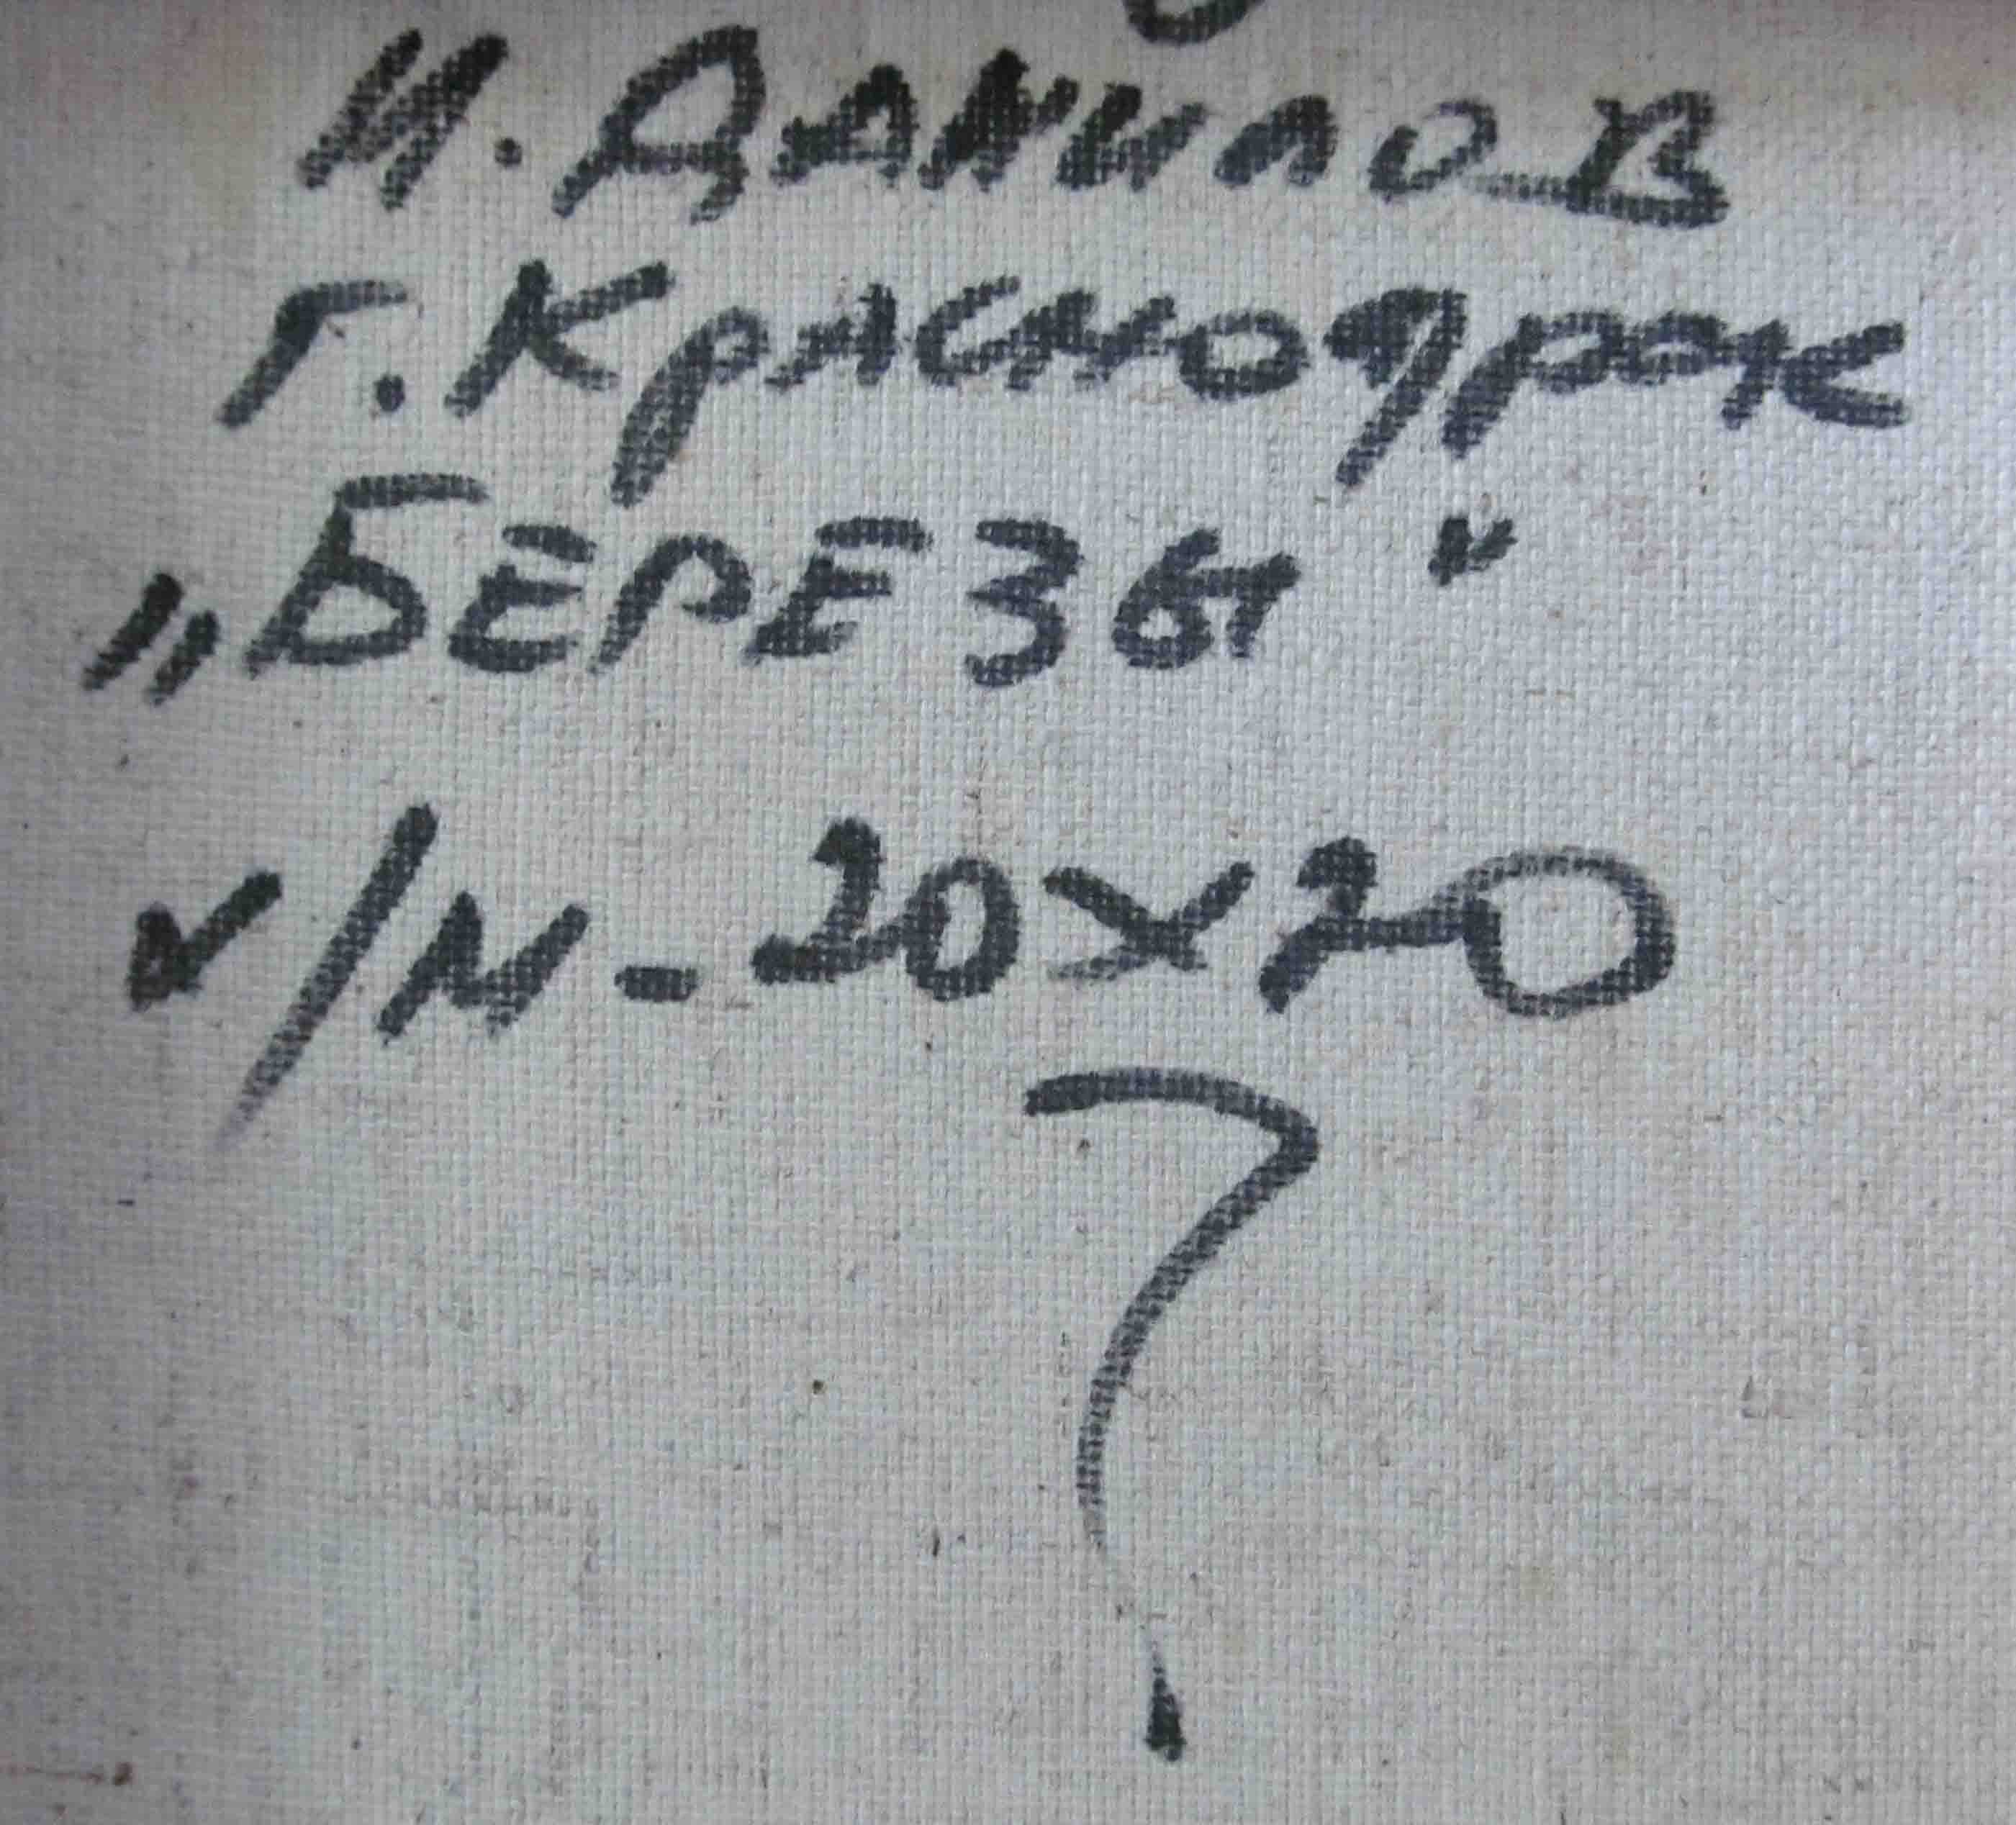 И. Данилов
г. Краснодрак
„БЕРЕЗЫ"
х/м - 20х20